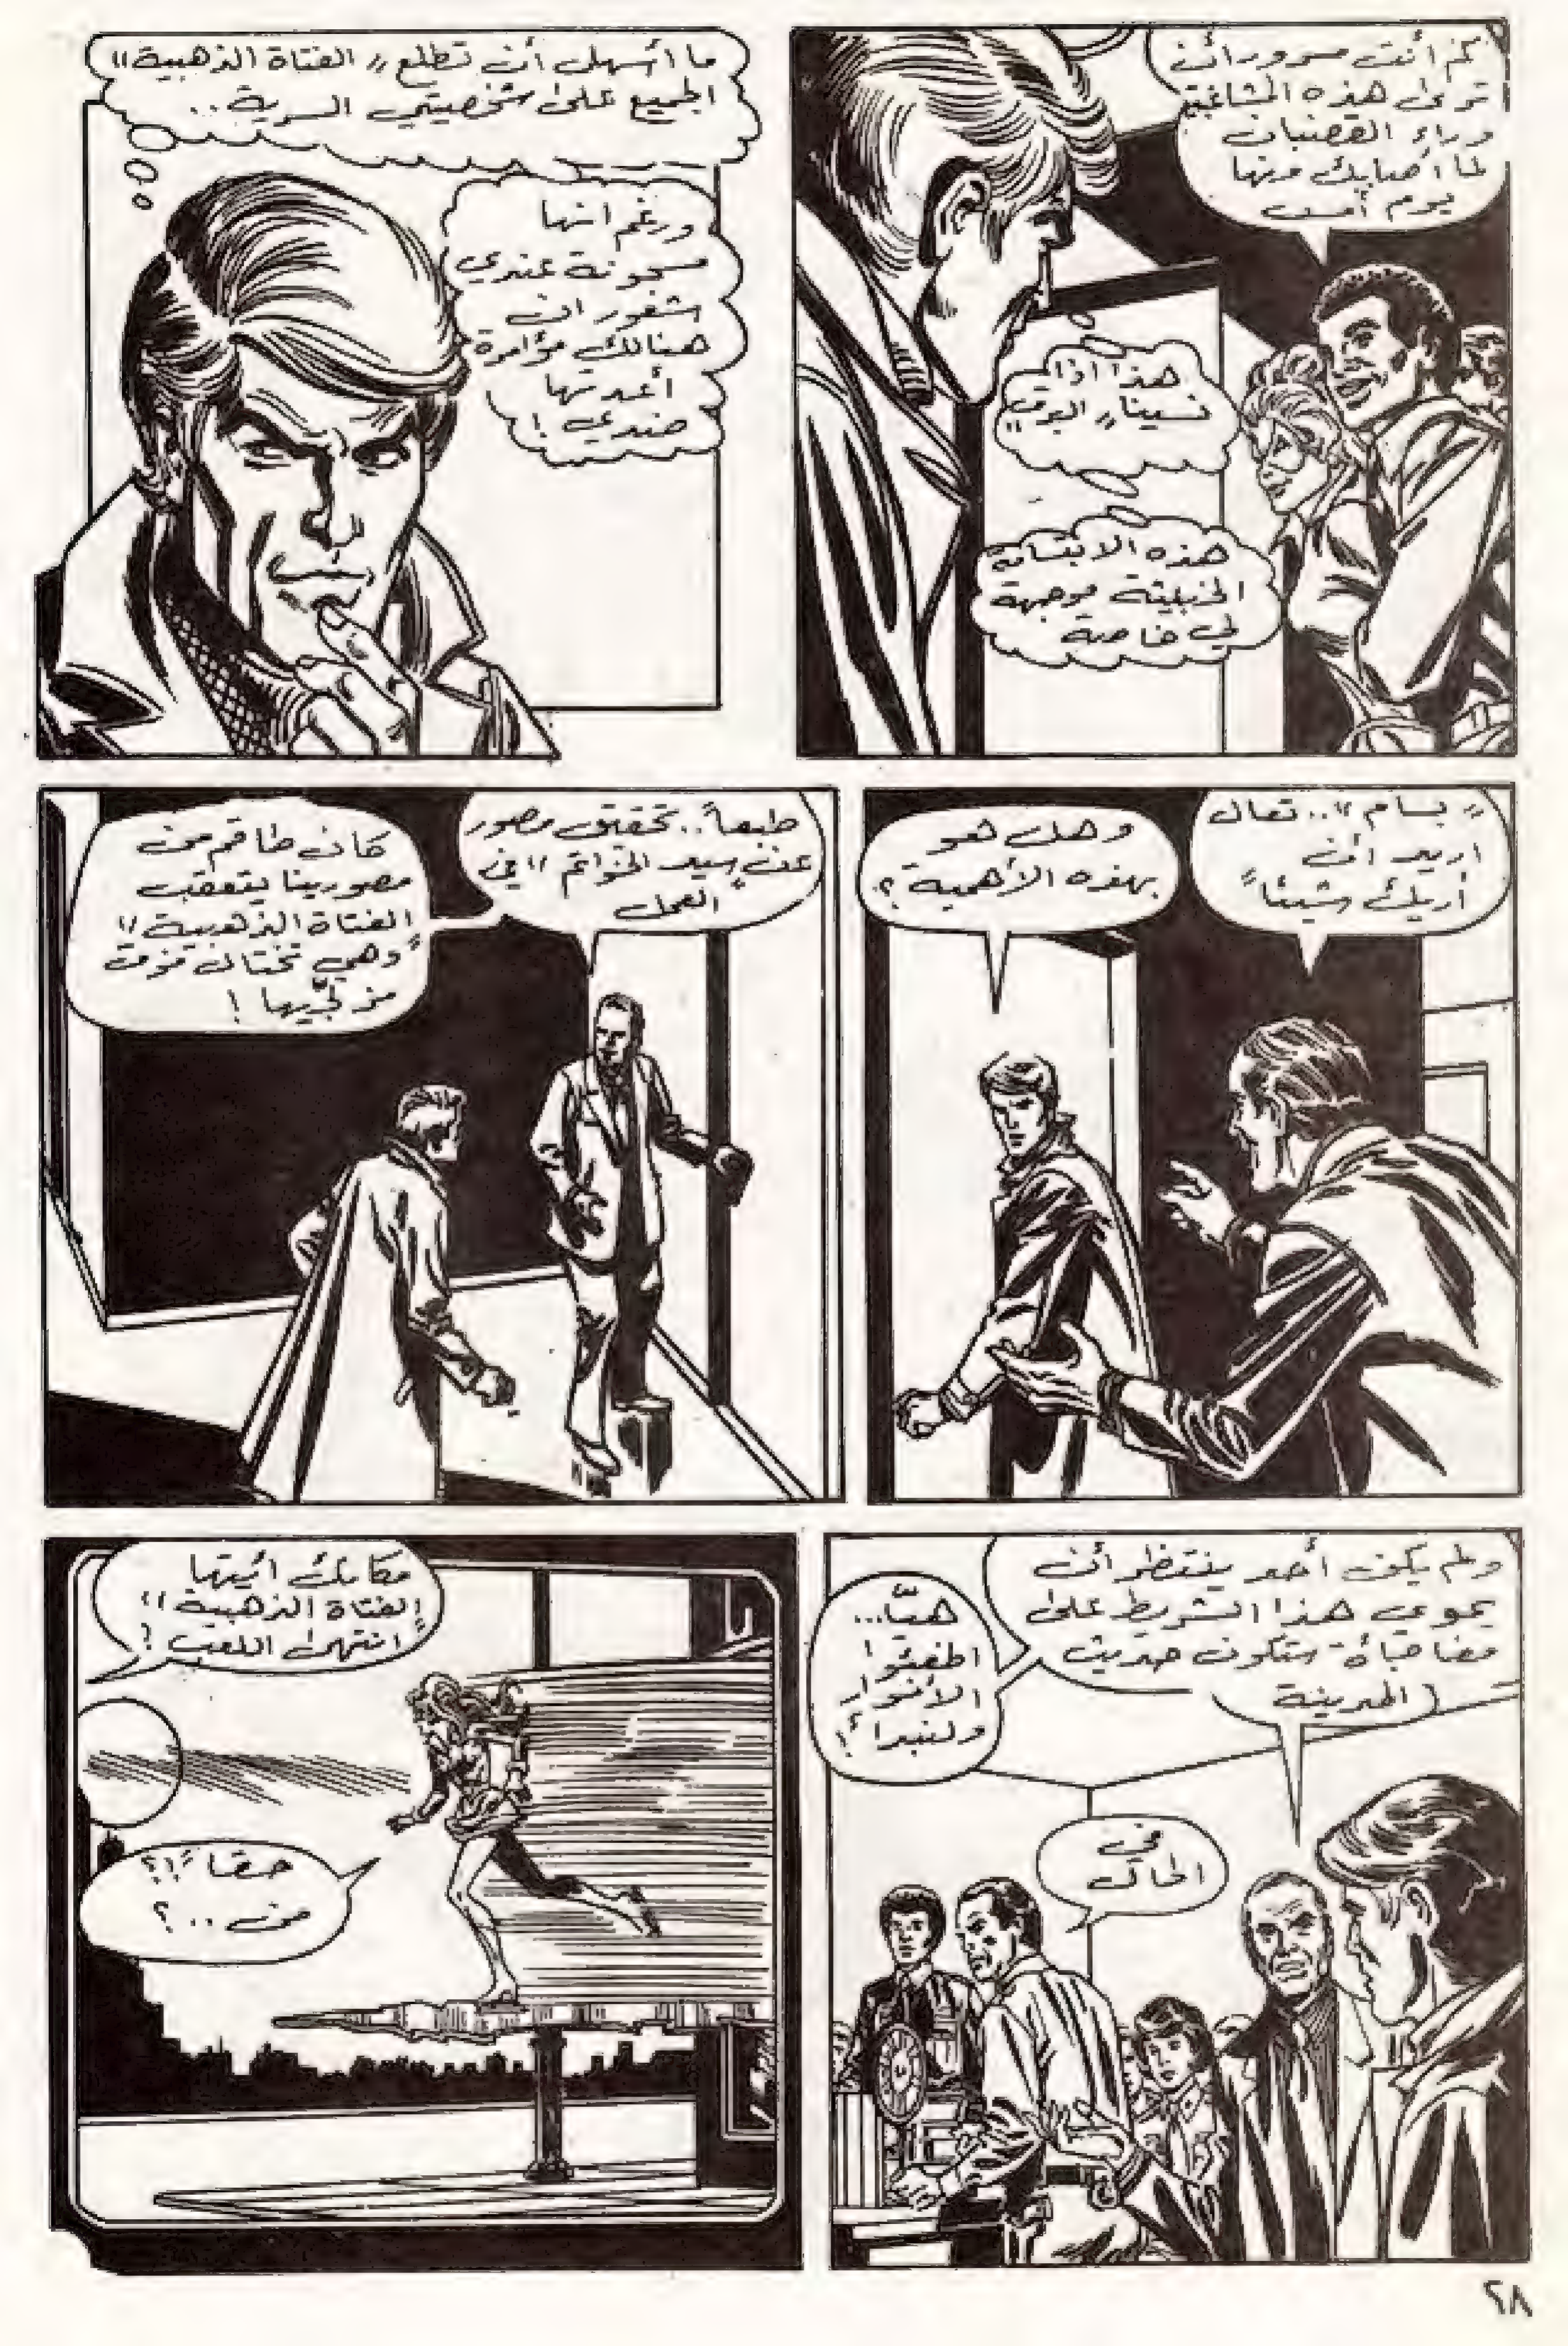 كم أنت مسرور أن
ترى هذه المشاغبة
وراء القضبان
لما أصابك منها
يوم أمس
هذا اذا
نسينا „ البوق "
هذه الابتسامة
الخبيثة موجهة
لي خاصة
ما أسهل أن تطلع „ الفتاة الذهبية "
الجميع على شخصيتي السرية..
ورغم انها
مسجونة عندي
شعور ان
هنالك مؤامرة
أعدتها
ضدي !
„ بسام ".. تعال
أريد أن
أريك شيئاً
وهل هو
بهذه الأهمية ؟
طبعاً.. تحقيق مصور
عن „ سيد الخواتم " في
العمل
كان طاقم من
مصورينا يتعقب
„ الفتاة الذهبية "
وهي تختال فوق
مزلجيها !
ولم يكن أحد ينتظر أن
يحوي هذا الشريط على
مفاجأة ستكون حديث
المدينة
هيّا...
اطفئوا
الأنوار
ولنبدأ !
في
الحال
مكانك أيتها
„ الفتاة الذهبية "
انتهى اللعب !
حقاً !؟
من .. ؟
٢٨